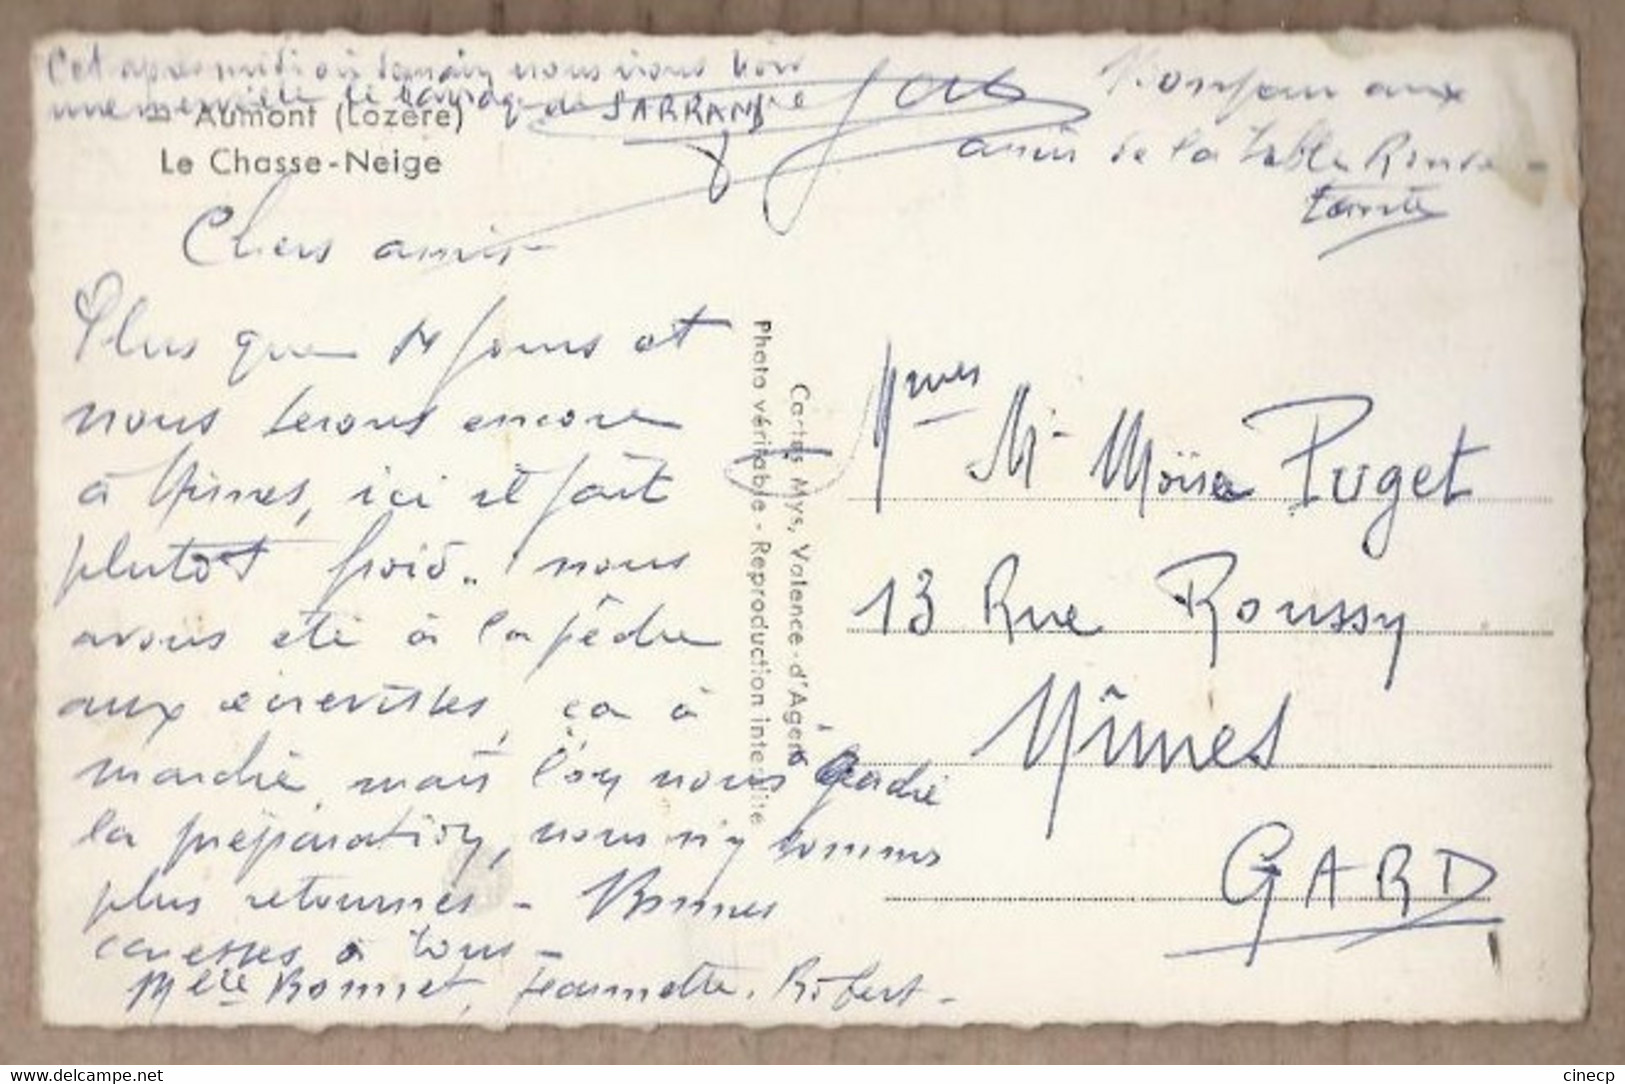 Cet après midi où demain nous irons voir
une merveille le barrage de SARRANS
Aumont (Lozère)
Le Chasse-Neige
Bonjour aux
amis de la Table Ronde -
Chers amis -
Plus que jours et
nous serons encore
à Nîmes, ici il fait
plutôt froid.. nous
avons été à la pêche
aux écrevisses, ça à
marché, mais l'on nous
la préparation, nous n'y sommes
plus retournés - Bonnes
caresses à tous -
Mlle Bonnet, Jeannette. Robert -
Cartes Mys, Valence-d'Agen
Photo véritable - Reproduction interdite
Mr Moïse Puget
13 Rue Roussy
Nîmes
GARD
cinecp